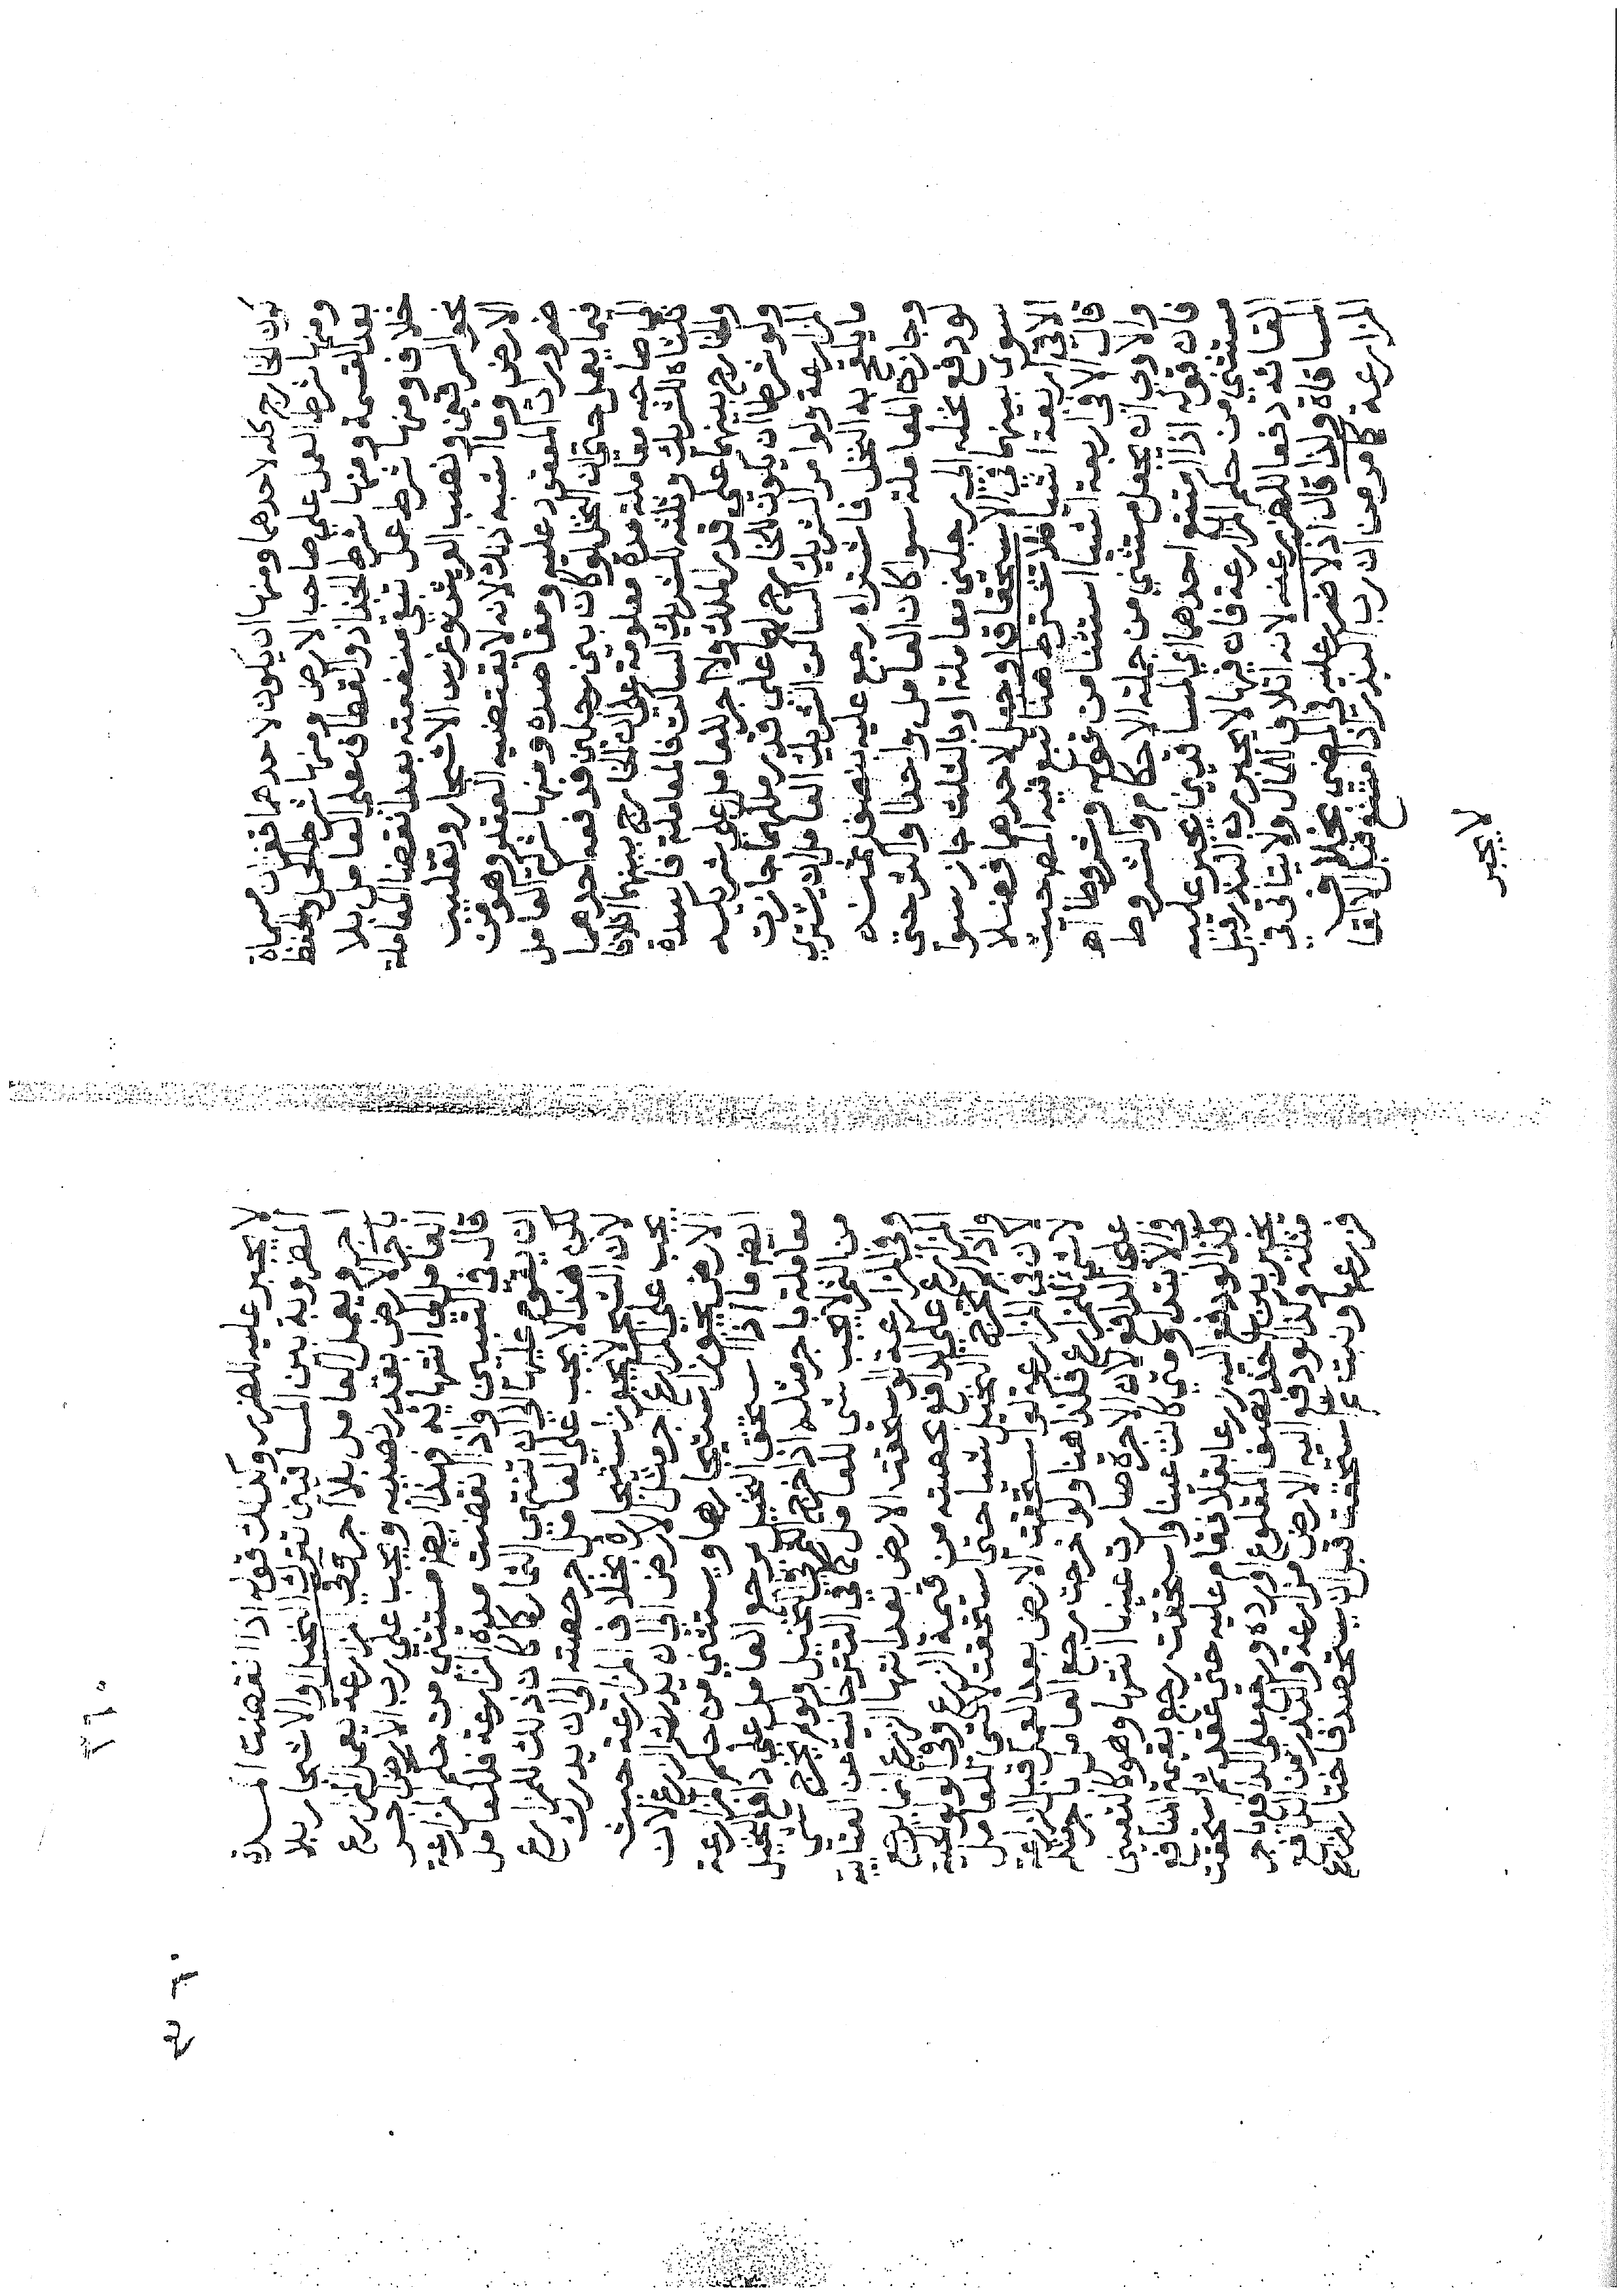 كون الخارج كله لاحدهما ومنها ان يكون لاحدهما قفزان مسماة
ومنها شرط العمل علي صاحب الارض ومنها شرط الحمل والحفظ
بعد القسمة ومنها شرط الجذاذ والقطاف علي العامل بلا
خلاف ومنها شرط عمل تبقي منفعته بعد انقضا المعاملة
نحو السرقين ونصب العريش وغرس الاشجار وتقليب
الارض وما اشبه ذلك لانه لا يقتضيه العقد وهو من
ضرورات المعقود عليه ومقاصده ومنها شركة العامل
فيما يعمل حتي ان النخل لو كان بين رجلين فدفعه احدهما
الي صاحبه معاملة مدة معلومة علي ان الخارج بينهما اثلاثا
ثلثاه للشريك وثلثه للشريك الساكت فالمعاملة فاسدة
والخارج بينهما علي قدر الملك ولا اجر للعامل علي شريكه
ولو شرطا ان يكون الخارج لهما علي قدر ملكهما جازت
المزارعة ولو امر الشريك الساكت الشريك العامل ان يشتري
ما يلقح به النخل فاشتراه رجع عليه بنصف ثمنه
وجازت المعاملة سوا كان العامل واحدا او اكثر حتي
لو دفع نخله الي رجلين معاملة او بالثلث جاز سوا
سوي بينهما في الاستحقاق او جعل لاحدهما فضلا
الا في اربعة اشيا فلا تشترط هنا تبع فيه المص حيث
قال الا في اربعة اشيا استثنا من قوله وشروطا اه
والاولي ان يجعل مستثني من جملة الاحكام والشروط
فان قوله اذا امتنع احدهما اي المساقيين يجبر عليه
مستثني من حكم المزارعة فان فيها لا يجبر رب البذر قبل
القائه دفعا للضرر عنه لانه اتلاف المال ولا يتاتي في
المساقاة ولذا قال اذ لا ضرر عليه في المضي بخلاف
المزارعة كما مر من ان رب البذر اذا امتنع قبل الالقا
لا يجبر
٢٦٠
لا يجبر عليه للضرر وكذلك قوله اذا انقضت المدة
المضروبة بين المساقيين تترك النخيل والاشجار بلا
اجر ويعمل العامل بلا اجر وفي المزارعة يعمل المزارع
باجر الارض بقدر نصيبه ويجب علي رب الارض اجر
العامل الي انتهائه وهذا ايضا مستثني من حكم المزارعة
قال في التبيين واذا انقضت مدة المزارعة فللعامل
ان يقوم عليها الي ان تنتهي الثمار كما كان ذلك للمزارع
لكن هنا لا يجب علي العامل اجر حصته الي ان يدرك
لان الشجر لا يجوز استيجاره بخلاف المزارعة حيث
يجب علي المزارع اجر مثل الارض الي ان يدرك الزرع لان
الارض يجوز استيجارها ويستثني من حكم المزارعة
ايضا ما اذا استحق النخيل يرجع العامل علي دافع النخيل
معاملة باجر مثله اذا خرج الثمر في النخيل ولو لم يخرج شي
من الثمر لا يجب شي للعامل كما في التترخانية من العتابية
وفي المزارعة لو استحقت الارض بعد انتها الزرع انما يرجع
المزارع علي الدافع بحصته من قيمة الزرع وفي الولوالجية
واذا لم تخرج النخيل شيا حتي استحقت لا شي للعامل
لان في المزارعة لو استحقت الارض بعد العمل قبل الزراعة
لا شي للمزارع فكذا هنا ولو خرجت رجع العامل باجر مثله
علي الدافع لان الاجرة صارت عينا انتها وهو كالتعيين
في الابتدا ومتي كانت عينا واستحقت رجع بقيمة المنافع
وكذا لو دفع اليه زرعا بقلا فقام عليه حتي عقد ثم استحقت
يخير بين اخذ نصف المقلوع او رده ورجع علي الدافع باجر
مثله وكذا لو دفع اليه الارض مزارعة والبذر من الدافع
فزرعها ونبتت ثم استحقت قبل ان يستحصد فاختار المزارع